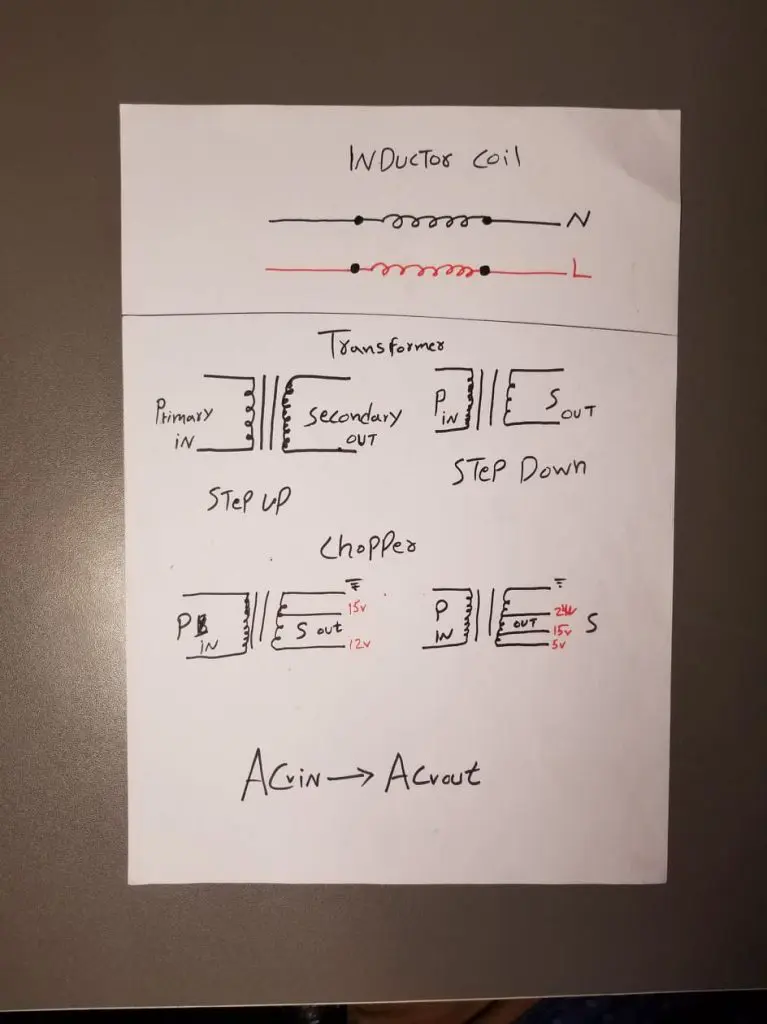 INDuctor Coil
N
L
Transformer
Primary
IN
Secondary
OUT
STeP UP
P
IN
S
OUT
STEP Down
Chopper
P
IN
15v
S out
12v
P
IN
24v
OUT
15v
5v
S
ACvin → ACvout